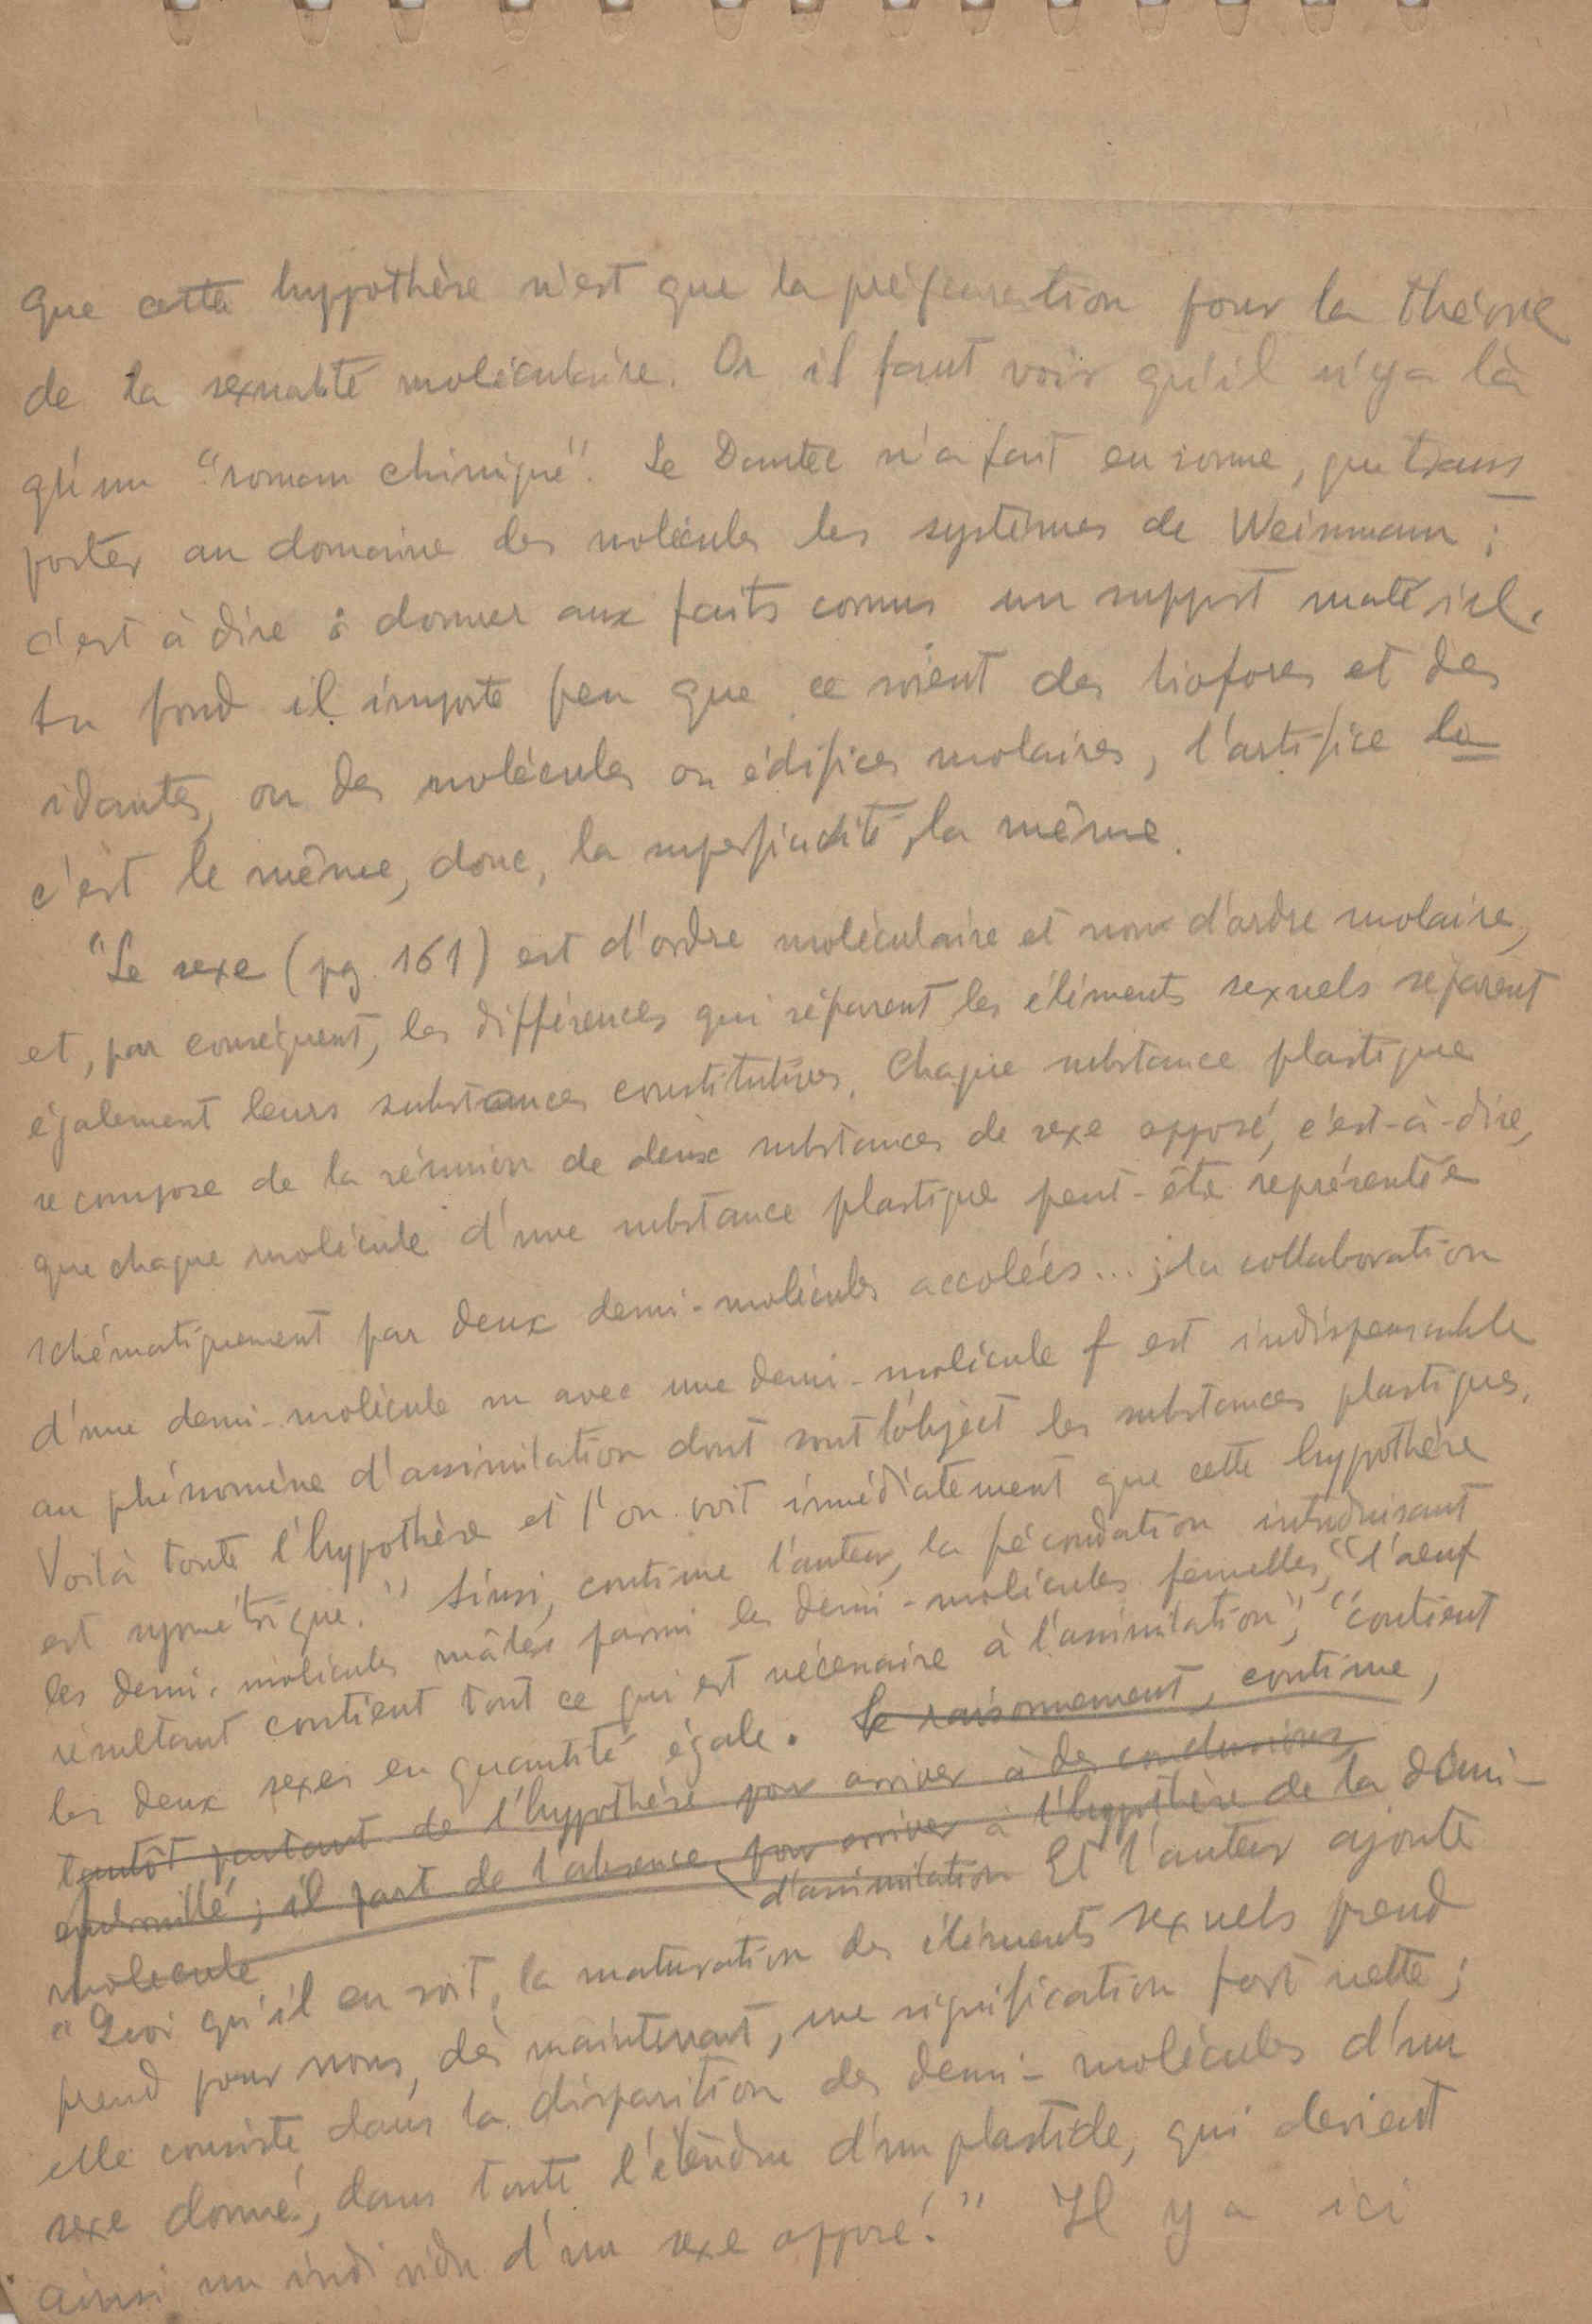 que cette hypothèse n'est que la préparation pour la théorie
de la sexualité moléculaire. Or il faut voir qu'il n'y a là
qu'un "roman chimique". Le Dantec n'a fait en somme, que trans
porter au domaine des molécules les systèmes de Weismann ;
c'est à dire à donner aux faits connus un support matériel.
Au fond il importe peu que ce soient des biofores et des
idantes, ou des molécules ou édifices molaires, l'artifice la
c'est le même, donc, la superficialité, la même.
"Le sexe (pg. 161) est d'ordre moléculaire et non d'ordre molaire,
et, par conséquent, les différences qui séparent les éléments sexuels séparent
également leurs substances constitutives. Chaque substance plastique
se compose de la réunion de deux substances de sexe opposé, c'est-à-dire,
que chaque molécule d'une substance plastique peut-être représentée
schématiquement par deux demi-molécules accolées... ; la collaboration
d'une demi-molécule m avec une demi-molécule f est indispensable
au phénomène d'assimilation dont sont l'object les substances plastiques.
Voilà toute l'hypothèse et l'on voit immédiatement que cette hypothèse
est symétrique." Ainsi, continue l'auteur, la fécondation introduisant
les demi-molécules mâles parmi les demi-molécules femelles, "l'œuf
résultant contient tout ce qui est nécessaire à l'assimilation", "contient
les deux sexes en quantité égale. Le raisonnement, continue,
tantôt partant de l'hypothèse pour arriver à des conclusions
embrouillé ; il part de l'absence, pour arriver à l'hypothèse de la demi-
molécule d'assimilation Et l'auteur ajoute
"Quoi qu'il en soit, la maturation des éléments sexuels prend
prend pour nous, dès maintenant, une signification fort nette ;
elle consiste dans la disparition des demi-molécules d'un
sexe donné, dans toute l'étendue d'un plastide, qui devient
ainsi un individu d'un sexe opposé." Il y a ici